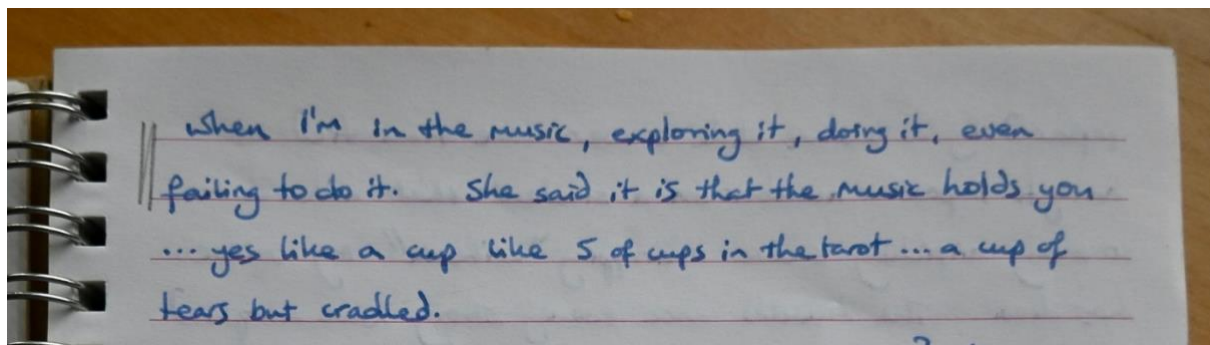 when I'm in the music, exploring it, doing it, even
failing to do it. She said it is that the music holds you
... yes like a cup like 5 of cups in the tarot ... a cup of
tears but cradled.